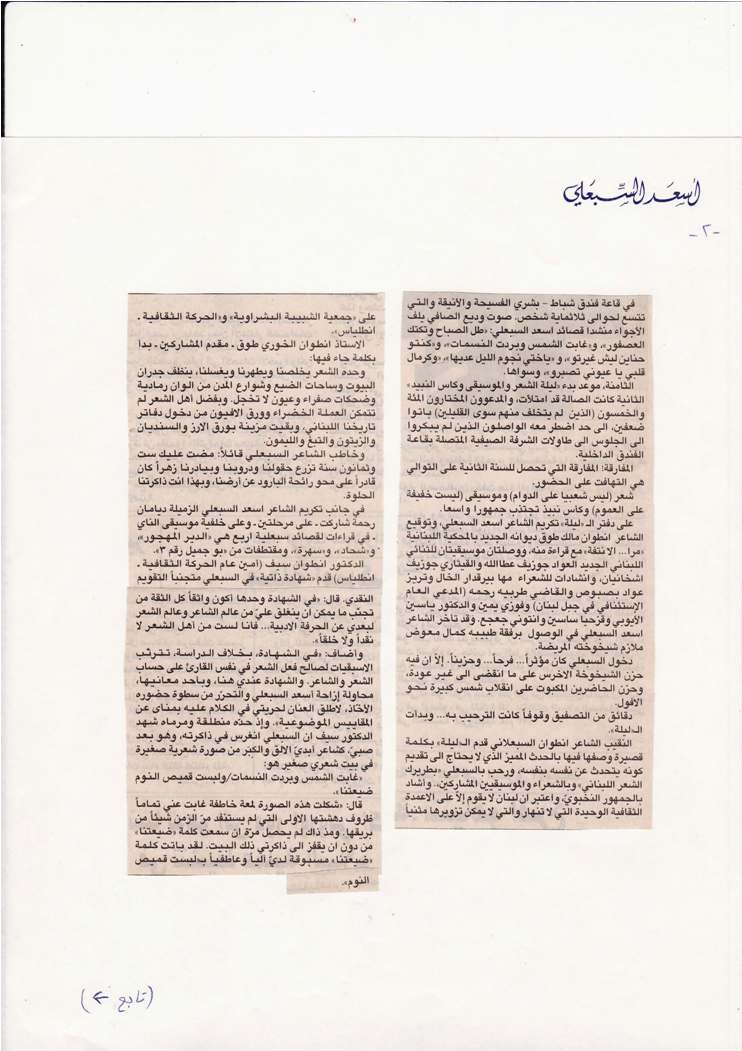 أسعد السبعلي
-٢-
في قاعة فندق شباط - بشري الفسيحة والأنيقة والتي
تتسع لحوالى ثلاثماية شخص، صوت وديع الصافي يلف
الأجواء منشدا قصائد اسعد السبعلي: «طل الصباح وتكتك
العصفور»، و«غابت الشمس وبردت النسمات»، و«كنتو
حناين ليش غيرتو»، و«ياختي نجوم الليل عديها»، «وكرمال
قلبي يا عيوني تصبرو»، وسواها.
الثامنة، موعد بدء «ليلة الشعر والموسيقى وكاس النبيد»
الثانية كانت الصالة قد امتلأت، والمدعوون المختارون المئة
والخمسون (الذين لم يتخلف منهم سوى القليلين) باتوا
ضعفين، الى حد اضطر معه الواصلون الذين لم يبكروا
الى الجلوس الى طاولات الشرفة الصيفية المتصلة بقاعة
الفندق الداخلية.
المفارقة: المفارقة التي تحصل للسنة الثانية على التوالي
هي التهافت على الحضور.
شعر (ليس شعبيا على الدوام) وموسيقى (ليست خفيفة
على العموم) وكاس نبيذ تجتذب جمهورا واسعا.
على دفتر الـ«ليلة» تكريم الشاعر اسعد السبعلي، وتوقيع
الشاعر انطوان مالك طوق ديوانه الجديد بالمحكية اللبنانية
«مرا... الا نتفة» مع قراءة منه، ووصلتان موسيقيتان للثنائي
اللبناني الجديد العواد جوزيف عطاالله والقيثاري جوزيف
اشخانيان، وانشادات للشعراء مها بيرقدار الخال وتريز
عواد بصبوص والقاضي طربيه رحمه (المدعي العام
الإستئنافي في جبل لبنان) وفوزي يمين والدكتور ياسين
الأيوبي وقزحيا ساسين وانتوني جعجع. وقد تأخر الشاعر
اسعد السبعلي في الوصول برفقة طبيبه كمال معوض
ملازم شيخوخته المريضة.
دخول السبعلي كان مؤثراً... فرحاً... وحزيناً. إلا ان فيه
حزن الشيخوخة الاخرس على ما انقضى الى غير عودة،
وحزن الحاضرين المكبوت على انقلاب شمس كبيرة نحو
الافول.
دقائق من التصفيق وقوفاً كانت الترحيب به... وبدأت
الـ«ليلة».
النقيب الشاعر انطوان السبعلاني قدم الـ«ليلة» بكلمة
قصيرة وصفها فيها بالحدث المميز الذي لا يحتاج الى تقديم
كونه يتحدث عن نفسه بنفسه، ورحب بالسبعلي «بطريرك
الشعر اللبناني» وبالشعراء والموسيقيين المشاركين. وأشاد
بالجمهور النخبوي، واعتبر ان لبنان لا يقوم إلاّ على الاعمدة
الثقافية الوحيدة التي لا تنهار والتي لا يمكن تزويرها مثنياً
على «جمعية الشبيبة البشراوية» و«الحركة الثقافية ـ
انطلياس».
الاستاذ انطوان الخوري طوق ـ مقدم المشاركين ـ بدأ
بكلمة جاء فيها:
وحده الشعر يخلصنا ويطهرنا ويغسلنا، ينظف جدران
البيوت وساحات الضيع وشوارع المدن من الوان رمادية
وضحكات صفراء وعيون لا تخجل. وبفضل أهل الشعر لم
تتمكن العملة الخضراء وورق الافيون من دخول دفاتر
تاريخنا اللبناني، وبقيت مزينة بورق الارز والسنديان
والزيتون والتبغ والليمون.
وخاطب الشاعر السبعلي قائلاً: مضت عليك ست
وثمانون سنة تزرع حقولنا ودروبنا وبيادرنا زهراً كان
قادراً على محو رائحة البارود عن أرضنا، وبهذا انت ذاكرتنا
الحلوة.
في جانب تكريم الشاعر اسعد السبعلي الزميلة ديامان
رحمة شاركت ـ على مرحلتين ـ وعلى خلفية موسيقى الناي
ـ في قراءات لقصائد سبعلية اربع هي «الدير المهجور»،
و«شحاد»، و«سهرة»، ومقتطفات من «بو جميل رقم ٣».
الدكتور انطوان سيف (أمين عام الحركة الثقافية ـ
انطلياس) قدم «شهادة ذاتية» في السبعلي متجنباً التقويم
النقدي. قال: «في الشهادة وحدها أكون واثقاً كل الثقة من
تجنّب ما يمكن ان ينغلق عليّ من عالم الشاعر وعالم الشعر
لبعدي عن الحرفة الادبية... فأنا لست من أهل الشعر لا
نقداً ولا خلقاً».
وأضاف: «في الشهادة، بخلاف الدراسة، تترتب
الاسبقيات لصالح فعل الشعر في نفس القارئ على حساب
الشعر والشاعر. والشهادة عندي هنا، وبأحد معانيها،
محاولة إزاحة أسعد السبعلي والتحرّر من سطوة حضوره
الأخّاذ، لاطلق العنان لحريتي في الكلام عليه بمنأى عن
المقاييس الموضوعية». وإذ حدّد منطلقه ومرماه شهد
الدكتور سيف ان السبعلي انغرس في ذاكرته، وهو بعد
صبيّ، كشاعر أبديّ الالق والكِبَر من صورة شعرية صغيرة
في بيت شعري صغير هو:
«غابت الشمس وبردت النسمات/ولبست قميص النوم
ضيعتنا».
قال: «شكلت هذه الصورة لمعة خاطفة غابت عني تماماً
ظروف دهشتها الاولى التي لم يستنفد مرّ الزمن شيئاً من
بريقها. ومذ ذاك لم يحصل مرّة ان سمعت كلمة «ضيعتنا»
من دون ان يقفز الى ذاكرتي ذلك البيت. لقد باتت كلمة
«ضيعتنا» مسبوقة لديّ آلياً وعاطفياً بـ«لبست قميص
النوم».
(تابع ←)